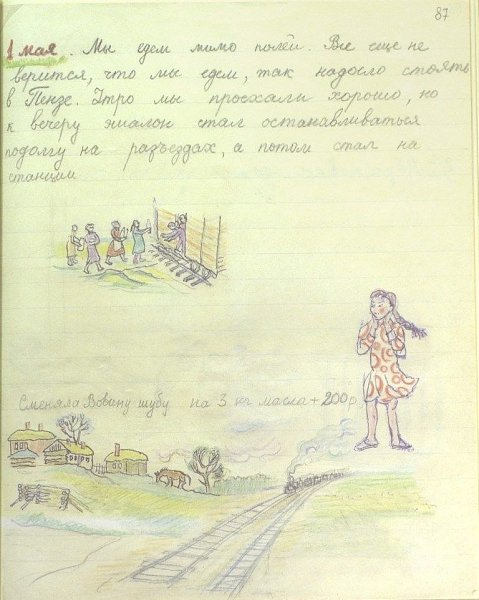 87
1 мая. Мы едем мимо полей. Все еще не
верится, что мы едем, так надоело стоять
в Пензе. Утро мы проехали хорошо, но
к вечеру эшалон стал останавливаться
подолгу на разъездах, а потом стал на
станции
Сменяла Вовину шубу на 3 кг масла + 200 р